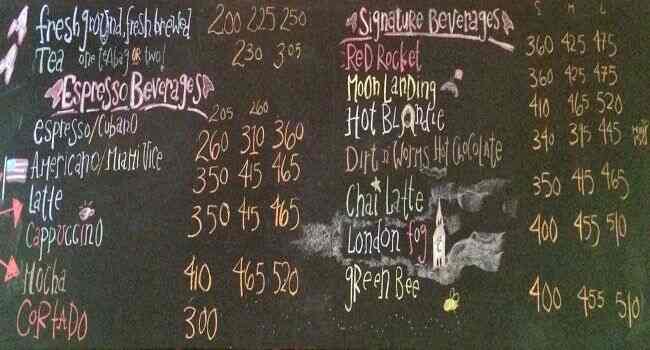 fresh ground, fresh brewed 200 225 250
Tea one teabag or two! 230 305
Espresso Beverages
espresso/Cubano 205 260
Americano/Miami Vice 260 310 360
Latte 350 415 465
Cappuccino 350 415 465
Mocha 410 465 520
CORTADO 300
Signature Beverages S M L
Red Rocket 360 425 475
Moon Landing 360 425 475
Hot Blondie 410 465 520
Dirt n Worms Hot Chocolate 340 395 445
Chai Latte 350 415 465
London Fog 400 455 510
Green Bee 400 455 510